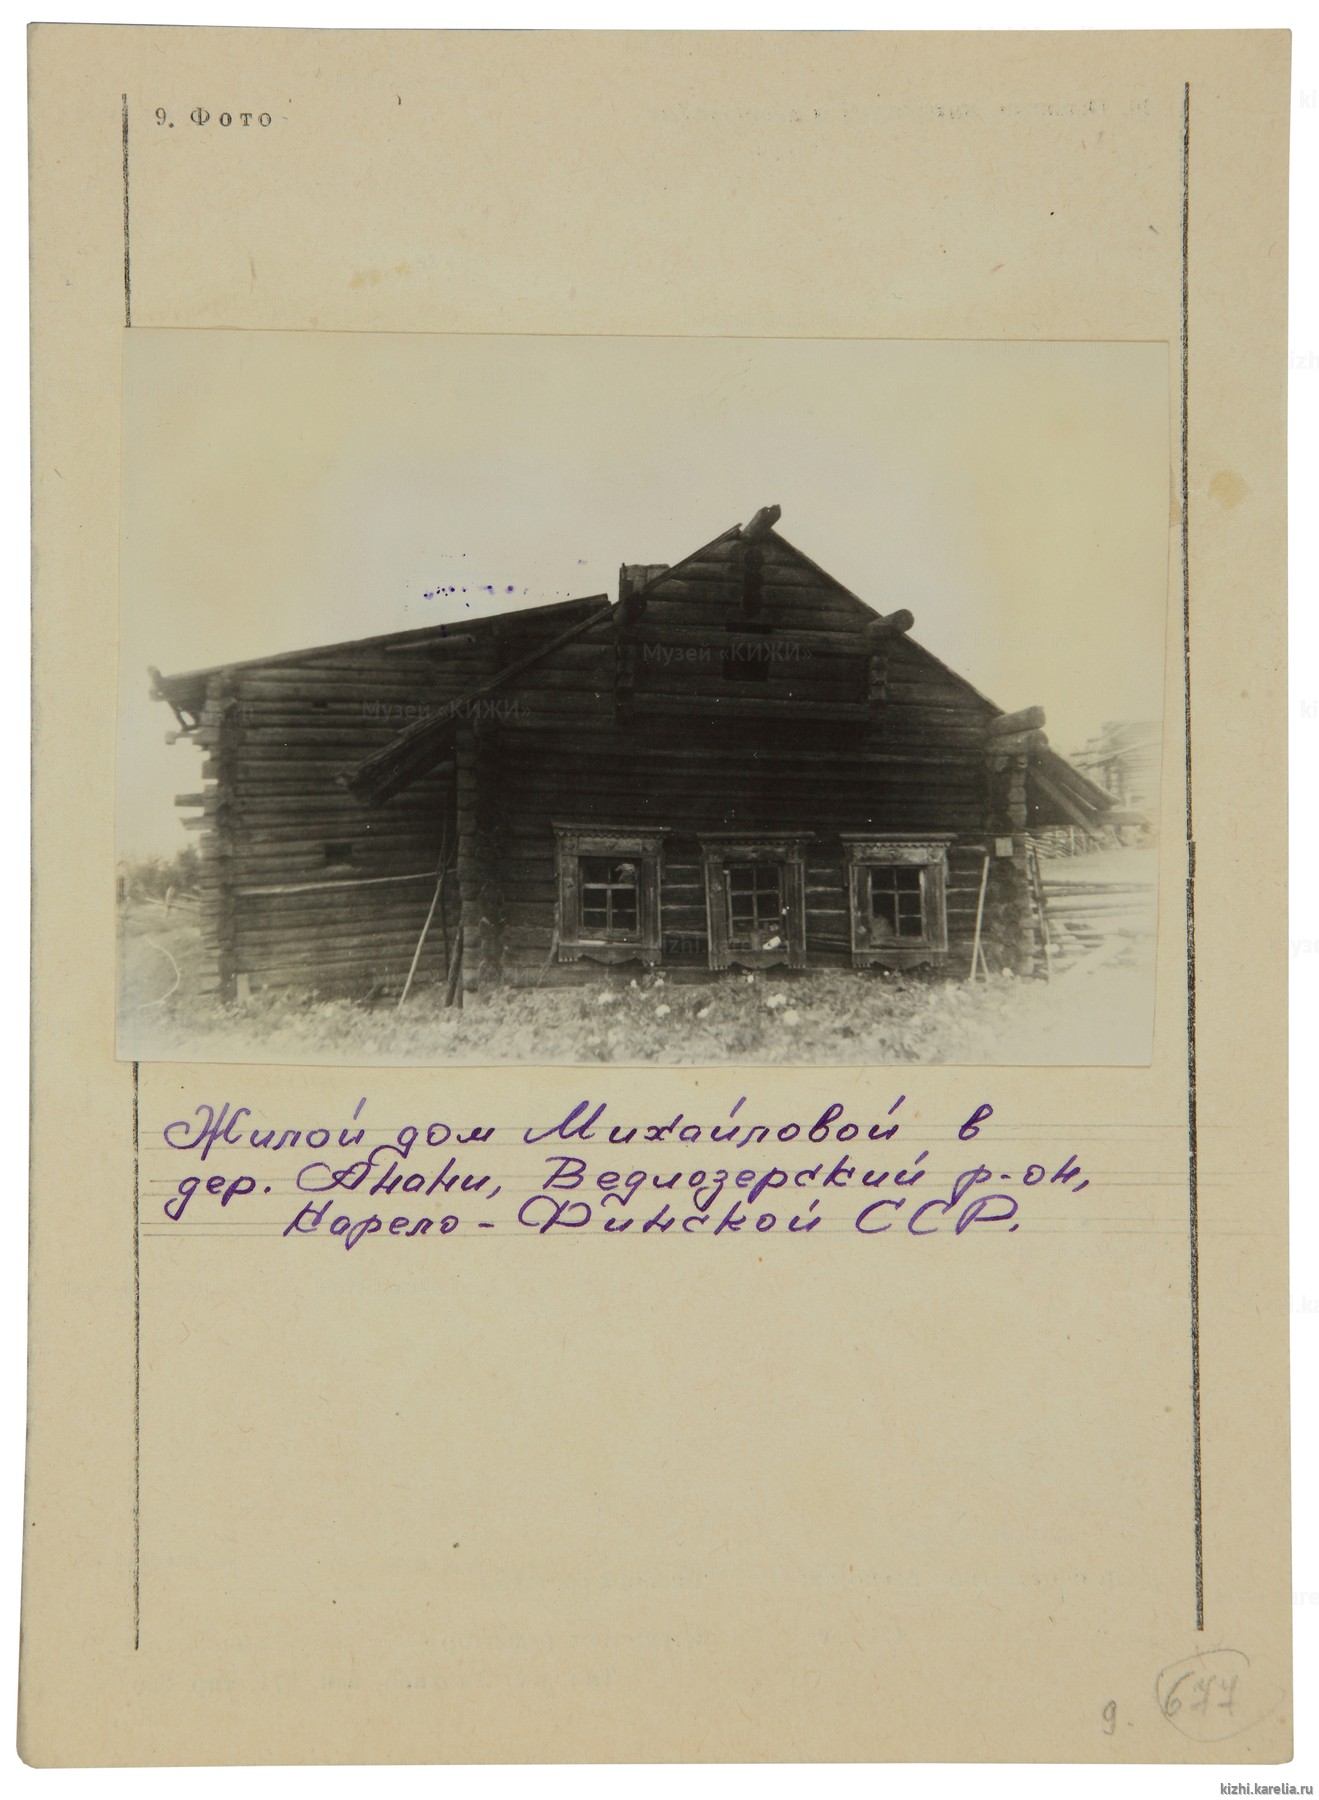 9. Фото
Музей «КИЖИ»
Музей «КИЖИ»
kizhi.karelia
Жилой дом Михайловой в
дер. Анани, Ведлозерский р-он,
Карело-Финской ССР.
9.
677
kizhi.karelia.ru